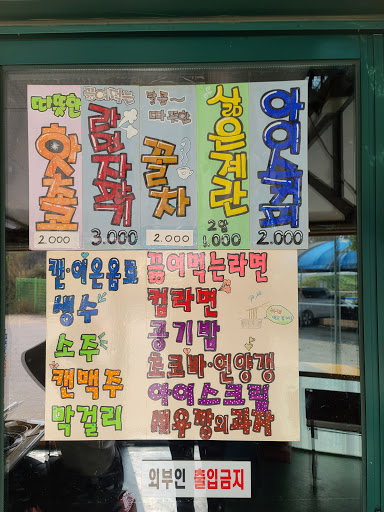 따뜻한
핫초코
2.000
끓여먹는
3.000
달콤~
따뜻한
꿀차
2.000
삶은계란
2알
1.000
아이스커피
2.000
캔·이온음료
생수
소주
캔맥주
막걸리
끓여먹는라면
컵라면
공기밥
초코바·연양갱
아이스크림
새우깡외과자
외부인 출입금지